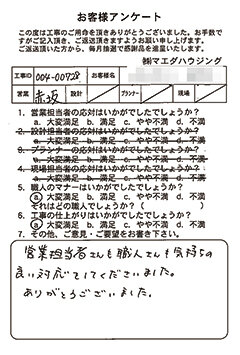 お客様アンケート
この度は工事のご用命を頂きありがとうございました。お手数で
すがご記入頂き、ご返送頂きますようお願い申し上げます。
ご返送頂いた方から、毎月抽選で感謝品を進呈いたします。
㈱マエダハウジング
工事ID 004-00728 お客様名
営業 赤坂 設計 プランナー 現場
1. 営業担当者の応対はいかがでしたでしょうか？
a. 大変満足 b. 満足 c. やや不満 d. 不満
2. 設計担当者の応対はいかがでしたでしょうか？
a. 大変満足 b. 満足 c. やや不満 d. 不満
3. プランナーの応対はいかがでしたでしょうか？
a. 大変満足 b. 満足 c. やや不満 d. 不満
4. 現場担当者の応対はいかがでしたでしょうか？
a. 大変満足 b. 満足 c. やや不満 d. 不満
5. 職人のマナーはいかがでしたでしょうか？
a 大変満足 b. 満足 c. やや不満 d. 不満
それはどの職人でしょうか？（ ）
6. 工事の仕上がりはいかがでしたでしょうか？
a 大変満足 b. 満足 c. やや不満 d. 不満
7. その他、ご意見・ご要望をお書き下さい。
営業担当者さんも職人さんも気持ちの
良い対応をしてくださいました。
ありがとうございました。